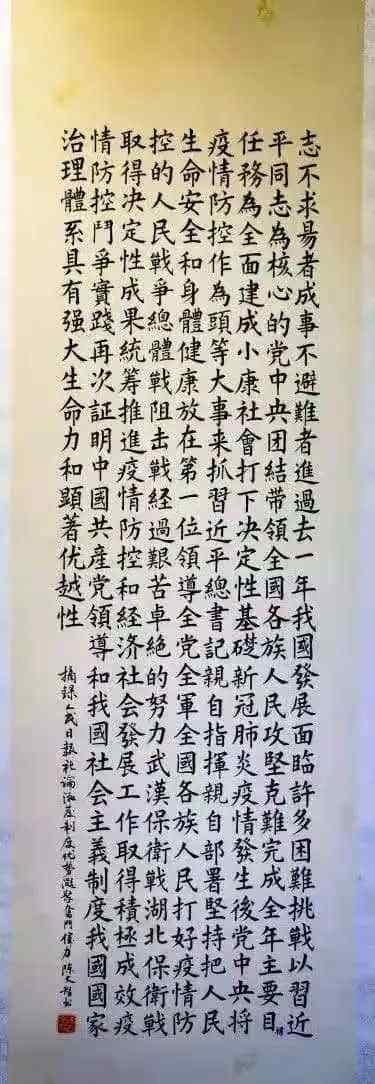 志不求易者成事不避難者進過去一年我國發展面臨許多困難挑戰以習近
平同志為核心的党中央团結带領全國各族人民攻堅克難完成全年主要目標
任務為全面建成小康社會打下决定性基礎新冠肺炎疫情發生後党中央將
疫情防控作為頭等大事来抓習近平總書記親自指揮親自部署堅持把人民
生命安全和身體健康放在第一位領導全党全軍全國各族人民打好疫情防
控的人民戰争總體戰阻击戰経過艱苦卓絶的努力武漢保衛戰湖北保衛戰
取得决定性成果統筹推進疫情防控和経济社会發展工作取得積極成效疫
情防控鬥争實踐再次証明中國共産党領導和我國社会主義制度我國國家
治理體系具有强大生命力和顯著优越性
摘録人民日報社論激发制度优势凝聚奮鬥偉力 陈文